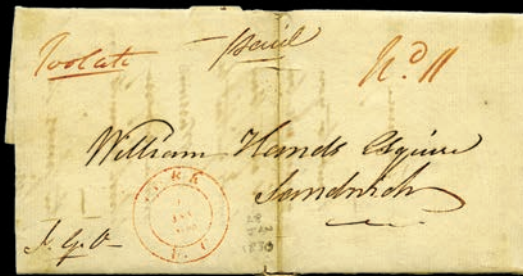 Too late Paid Pd 11
William Hands Esquire
Sandwich
YORK
U. C
28
JAN
1830